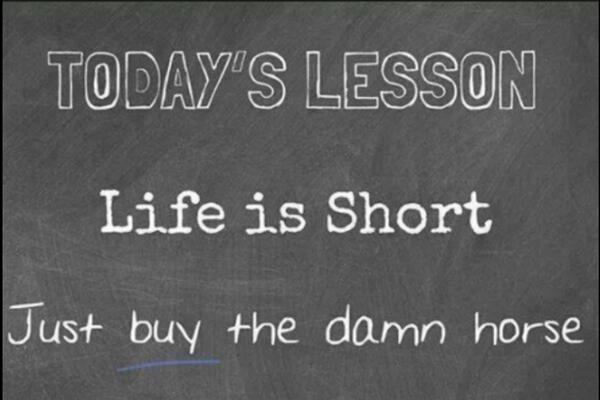 TODAY'S LESSON
Life is Short
Just buy the damn horse